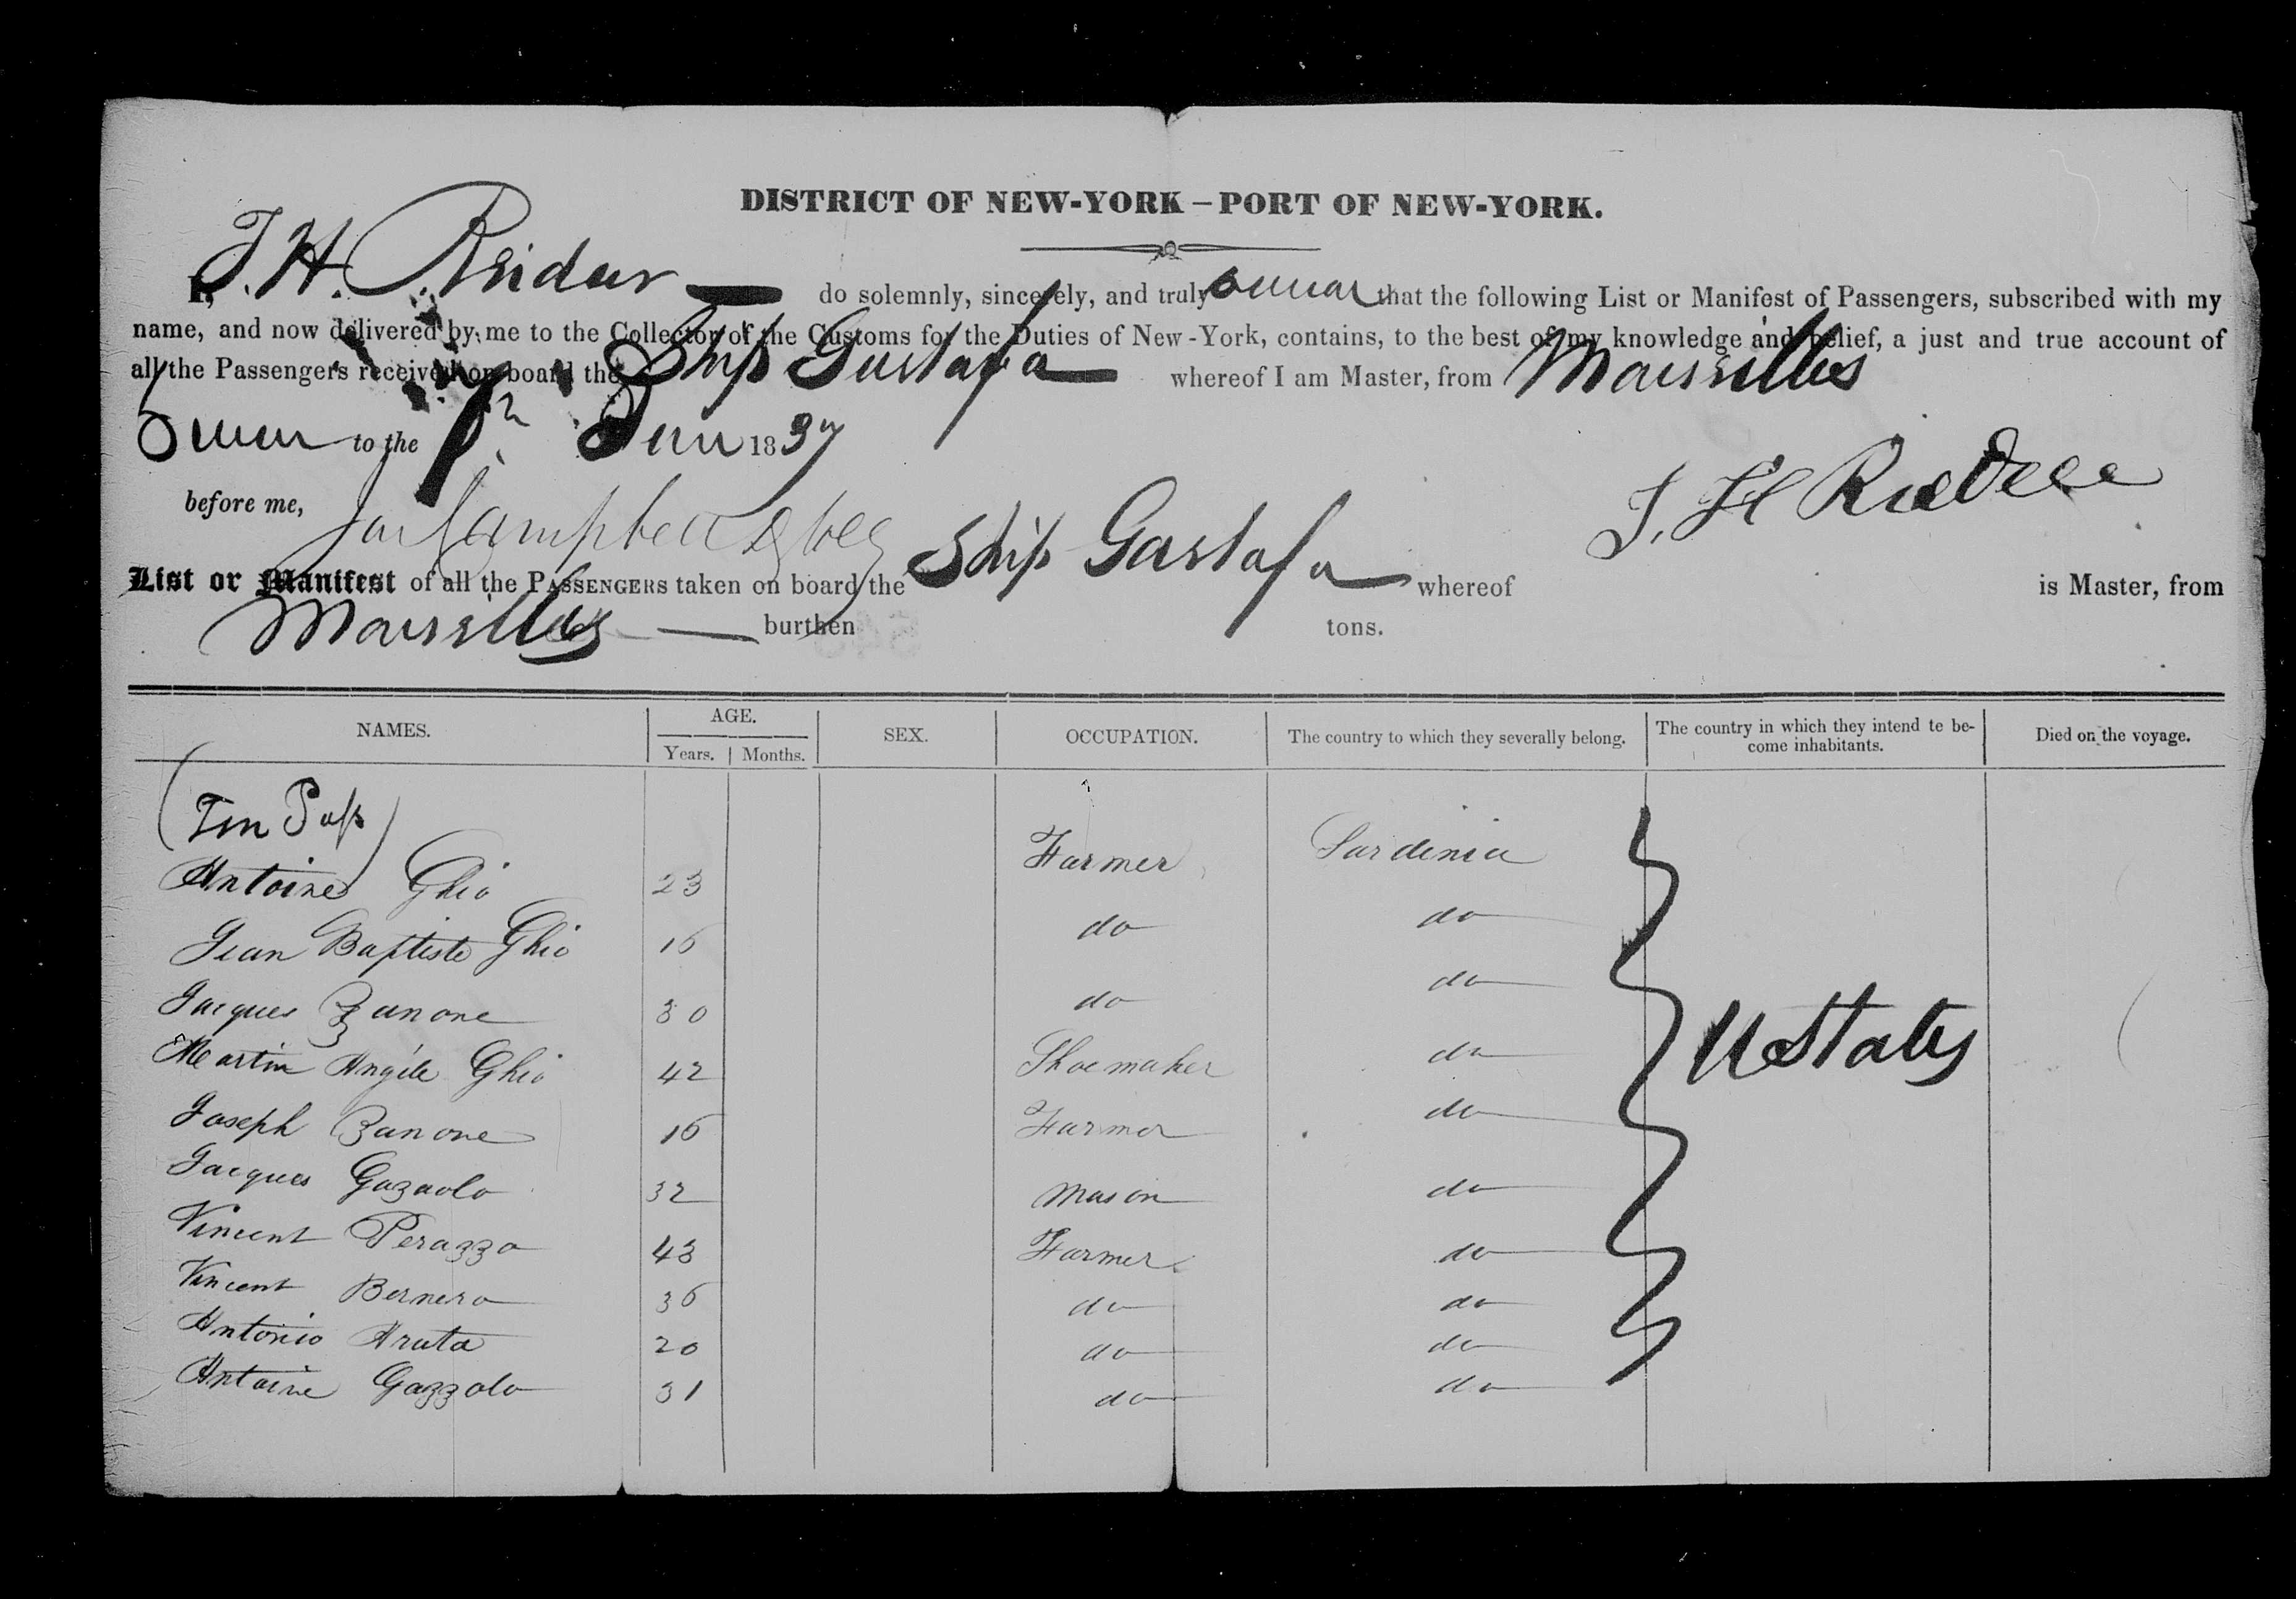 DISTRICT OF NEW-YORK – PORT OF NEW-YORK.
I, J. H. do solemnly, sincerely, and truly swear that the following List or Manifest of Passengers, subscribed with my
name, and now delivered by me to the Collector of the Customs for the Duties of New-York, contains, to the best of my knowledge and belief, a just and true account of
all the Passengers received on board the Ship Gustafa whereof I am Master, from Marseilles
Sworn to the 1837
before me, Campbell J. H.
List or Manifest of all the PASSENGERS taken on board the Ship Gustafa whereof is Master, from
Marseilles burthen tons.
NAMES. AGE. SEX. OCCUPATION. The country to which they severally belong. The country in which they intend te be-
come inhabitants. Died on the voyage.
Years. Months.
(Ten Pass)
Antoine Ghio 23 Farmer Sardinia
Jean Baptiste Ghio 16 do do
Jacques Zanone 30 do do
Martin Angèle Ghio 42 Shoemaker do
Joseph Zanone 16 Farmer do
Jacques Gazaolo 32 Mason do
Vincent Perazzo 43 Farmer do
Vincent Bernero 36 do do
Antonio Aruta 20 do do
Antoine Gazzolo 31 do do
U States